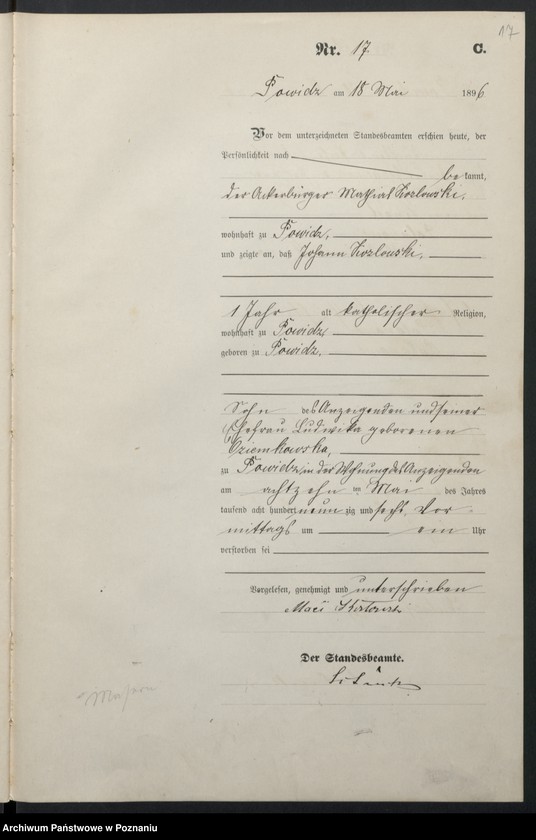 17
Nr. 17 C.
Powidz am 18 Mai 1896
Vor dem unterzeichneten Standesbeamten erschien heute, der
Persönlichkeit nach
bekannt,
der Ackerbürger Mathias Kozlowski,
wohnhaft zu Powidz,
und zeigte an, daß Johann Kozlowski,
1 Jahr alt katholischer Religion,
wohnhaft zu Powidz
geboren zu Powidz,
Sohn des Anzeigenden und seiner
Ehefrau Ludwika geborenen
zu Powidz in der Wohnung des Anzeigenden
am achtzehn ten Mai des Jahres
tausend acht hundert neunzig und sechs Vor-
mittags um ein Uhr
verstorben sei
Vorgelesen, genehmigt und unterschrieben
Der Standesbeamte.
Archiwum Państwowe w Poznaniu